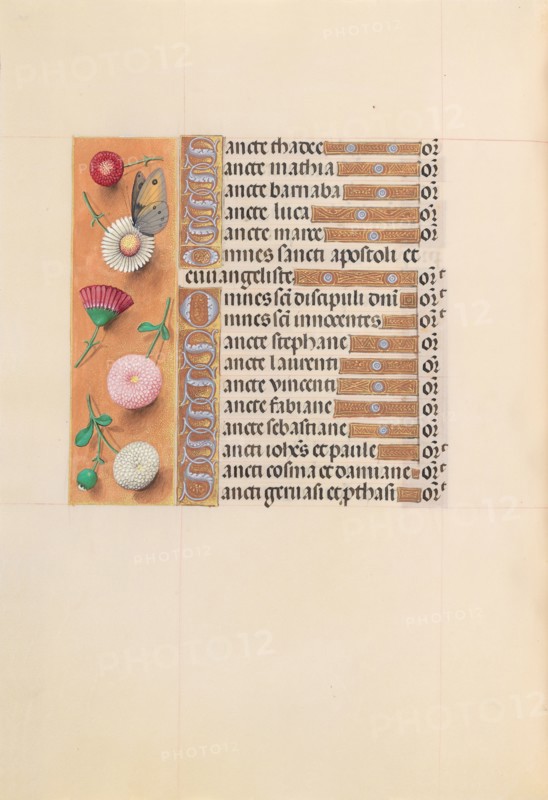 Sancte thadee or
Sancte mathia or
Sancte barnaba or
Sancte luca or
Sancte marce or
Omnes sancti apostoli et
euuangeliste orᵗ
Omnes sc̄i discipuli dn̄i orᵗ
Omnes sc̄i innocentes orᵗ
Sancte stephane or
Sancte laurenti or
Sancte vincenti or
Sancte fabiane or
Sancte sebastiane or
Sancti ioh̄es et paule orᵗ
Sancti cosma et damiane orᵗ
Sancti geruasi et ꝓthasi orᵗ
PHOTO12